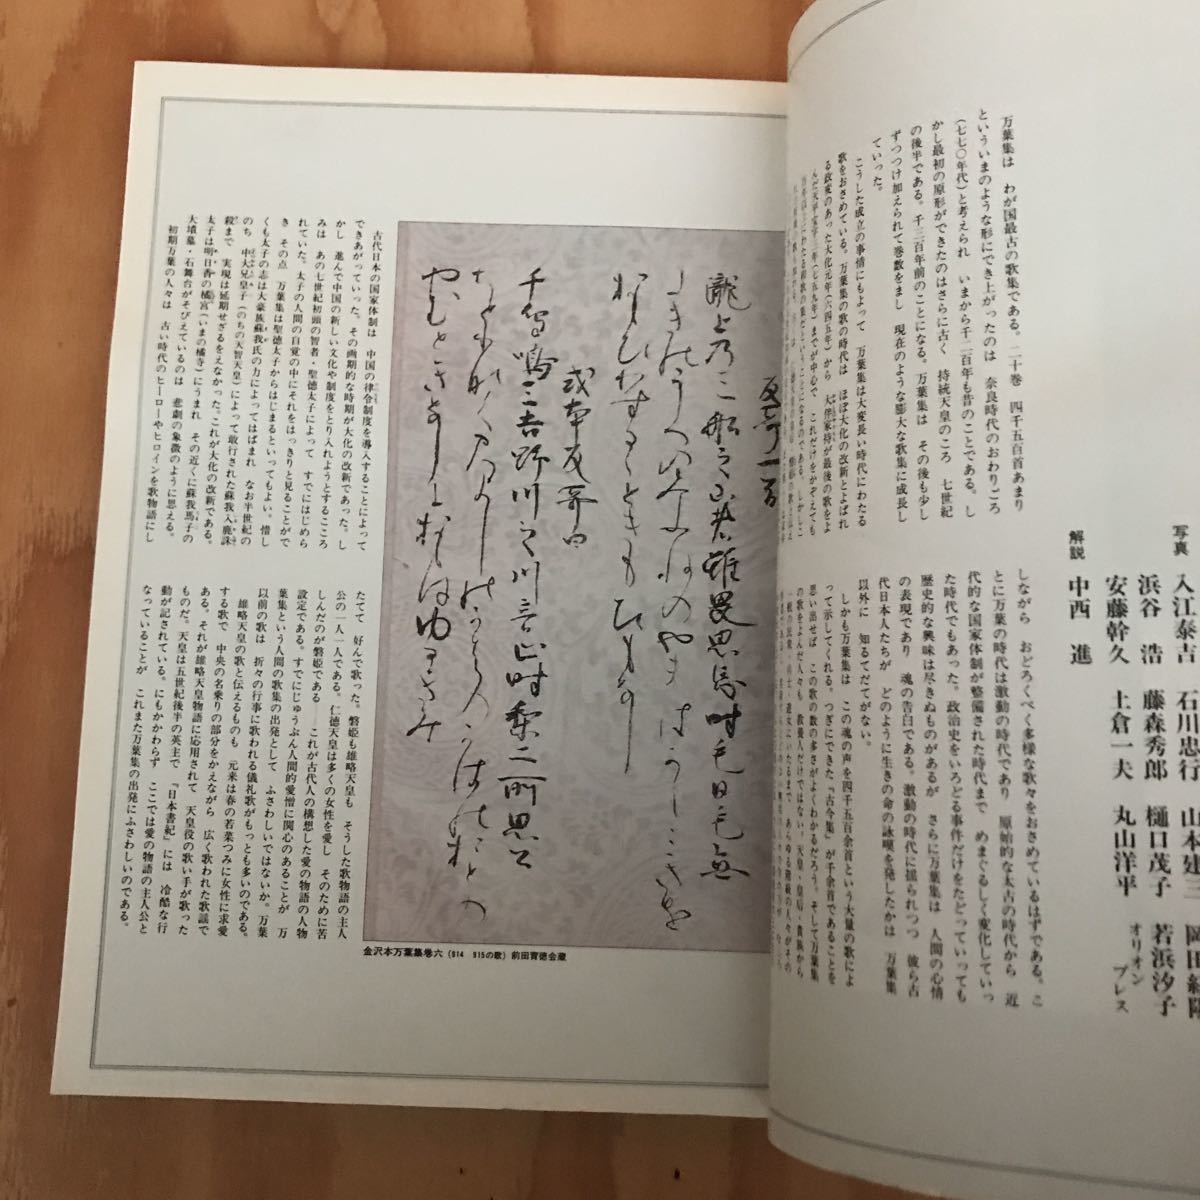 写真 入江泰吉 石川忠行 山本建三
浜谷 浩 藤森秀郎 樋口茂子 若浜汐子
安藤幹久 土倉一夫 丸山洋平 オリオンプレス
解説 中西 進
万葉集は わが国最古の歌集である。二十巻 四千五百首あまり
といういまのような形にでき上がったのは 奈良時代のおわりごろ
(七七〇年代)と考えられ いまから千二百年も昔のことである。し
かし最初の原形ができたのはさらに古く 持統天皇のころ 七世紀
の後半である。千三百年前のことになる。万葉集は その後も少し
ずつつけ加えられて巻数をまし 現在のような膨大な歌集に成長し
ていった。
こうした成立の事情にもよって 万葉集は大変長い時代にわたる
歌をおさめている。万葉集の歌の時代は ほぼ大化の改新とよばれ
る政変のあった大化元年(六四五年)から 大伴家持が最後の歌をよ
んだ天平宝字三年(七五九年)までが中心で これだけをかぞえても
しながら おどろくべく多様な歌々をおさめているはずである。こ
とに万葉の時代は激動の時代であり 原始的な太古の時代から 近
代的な国家体制が整備された時代まで めまぐるしく変化していっ
た時代でもあった。政治史をいろどる事件だけをたどっていっても
歴史的な興味は尽きぬものがあるが さらに万葉集は 人間の心情
の表現であり 魂の告白である。激動の時代に揺られつつ 彼ら古
代日本人たちが どのように生き の命の詠嘆を発したかは 万葉集
以外に 知るてだてがない。
しかも万葉集は この魂の声を四千五百余首という大量の歌によ
って示してくれる。つぎにできた「古今集」が千余首であることを
思い出せば この歌の数の多さがよくわかるだろう。そして万葉集
の歌をよんだ人々も 教養人だけではない。天皇・皇后・貴族から
反哥一首
瀧上乃三船之山者雖畏思忘時毛日毛無
或本反哥曰
千鳥鳴三吉野川之川音止時梨二所思公
金沢本万葉集巻六(914 915の歌)前田育徳会蔵
古代日本の国家体制は 中国の律令制度を導入することによって
できあがっていった。その画期的な時期が大化の改新であった。し
かし 進んで中国の新しい文化や制度をとり入れようとするこころ
みは あの七世紀初頭の智者・聖徳太子によって すでにはじめら
れていた。太子の人間の自覚の中にそれをはっきりと見ることがで
き その点 万葉集は聖徳太子からはじまるといってもよい。惜し
くも太子の志は大豪族蘇我氏の力によってはばまれ なお半世紀の
のち 中大兄皇子(のちの天智天皇)によって敢行された蘇我入鹿誅
殺まで 実現は延期せざるをえなかった。これが大化の改新である。
太子は明日香の橘宮(いまの橘寺)にうまれ その近くに蘇我馬子の
大墳墓・石舞台がそびえているのは 悲劇の象徴のように思える。
初期万葉の人々は 古い時代のヒーローやヒロインを歌物語にし
たてて 好んで歌った。磐姫も雄略天皇も そうした歌物語の主人
公の一人一人である。仁徳天皇は多くの女性を愛し そのために苦
しんだのが磐姫である――これが古代人の構想した愛の物語の人物
設定である。すでにじゅうぶん人間的愛憎に関心のあることが 万
葉集という人間の歌集の出発として ふさわしいではないか。万葉
以前の歌は 折々の行事に歌われる儀礼歌がもっとも多いのである。
雄略天皇の歌と伝えるものも 元来は春の若菜つみに女性に求愛
する歌で 中央の名乗りの部分をかえながら 広く歌われた歌謡で
ある。それが雄略天皇物語に応用されて 天皇役の歌い手が歌った
ものだ。天皇は五世紀後半の英主で 『日本書紀』には 冷酷な行
動が記されている。にもかかわらず ここでは愛の物語の主人公と
なっていることが これまた万葉集の出発にふさわしいのである。